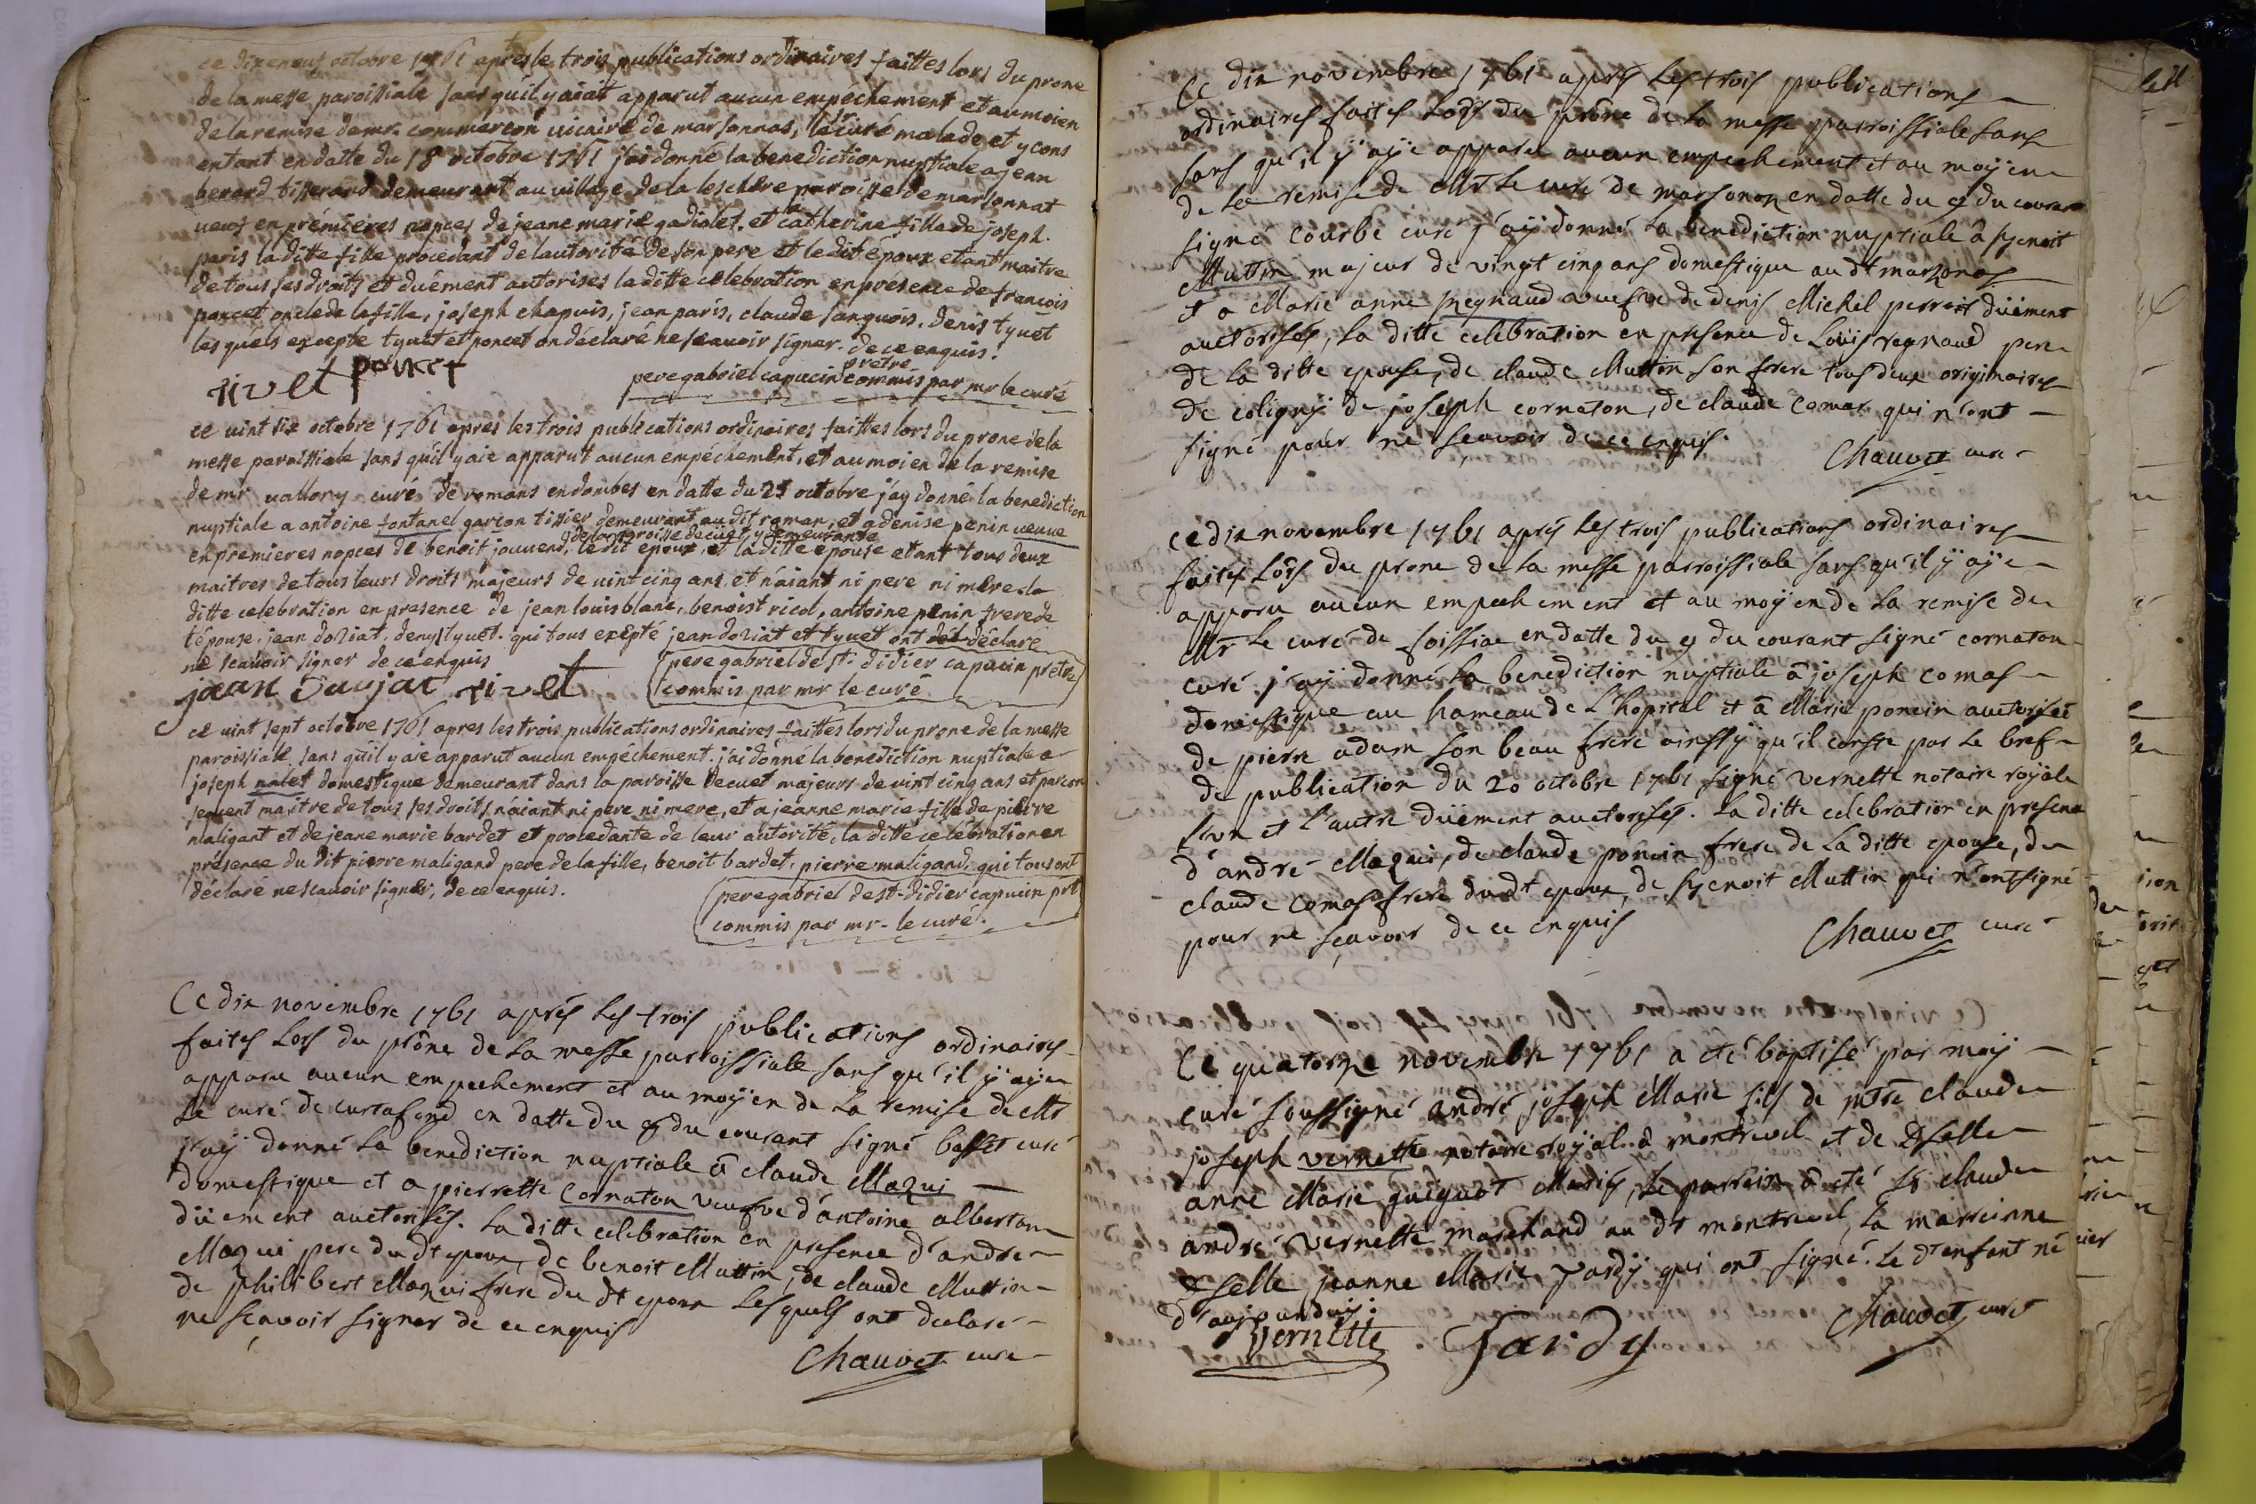 ce dizeneuf octobre 1761 apres le trois publications ordinaires faittes lors du prone
de la messe paroissiale sans qu'il y aiat apparut aucun empechement et aumoien
de la remise de mr. commerçon vicaire de marsonnas, le sr curé malade et y cons
entant en datte du 18 octobre 1761 j'ai donné la benediction nuptiale a jean
bererd tisserand demeurant au village de la leschere paroisse de marsonnat
veuf en prémieres nopces de jeane marie gadiolet. et a catherine fille de joseph.
paris la ditte fille procedant de lautorité de son pere et le dit époux etant maitre
de tous ses droits et duément autorises la ditte célebration en présence de francois
poncet oncle de la fille, joseph chapuis, jean paris, claude sanguois. denis tyuet
les quels excepte tyuet et poncet on déclaré ne scavoir signer. de ce enquis.
rivet poncet
pere gabriel capucin prêtre commis par mr le curé
ce vint six octobre 1761 apres les trois publications ordinaires faittes lors du prone de la
messe paroissiale sans qu'il y aie apparut aucun empéchement, et au moien de la remise
de mr vallory curé de romans en dombes en datte du 25 octobre j'ay donné la benediction
nuptiale a antoine fontanel garcon tissier demeurant au dit roman, et a denise penin veuve
de la paroisse de cuet y demeurante
en premieres nopces de benoit jouvend, le dit epoux, et la ditte epouse etant tous deux
maitres de tous leurs droits majeurs de vint cinq ans et n'aiant ni pere ni mere. la
ditte celebration en presence de jean louis blanc, benoist ricol, antoine penin frere de
l'épouse. jean doriat. deny tyuet. qui tous exepté jean doriat et tyuet ont déclaré
ne scavoir signer de ce enquis
jean Daujat rivet
pere gabriel de st. didier capucin prêtre
commis par mr le curé
ce vint sept octobre 1761 apres les trois publications ordinaires faittes lors du prone de la messe
paroissiale sans qu'il y aie apparut aucun empéchement. j'ai donné la benediction nuptiale a
joseph nalet domestique demeurant dans la paroisse de cuet majeurs de vint cinq ans et par con
sequent maitre de tous ses droits n'aiant ni pere ni mere, et a jeanne marie fille de pierre
maligant et de jeane marie bardet et procedante de leur autorité, la ditte célebration en
présence du dit pierre maligand pere de la fille, benoit bardet, pierre maligand, qui tous ont
déclaré ne scavoir signer, de ce enquis.
pere gabriel de st. didier capucin prt
commis par mr. le curé.
Ce dix novembre 1761 aprés les trois publications ordinaires
faites lors du prône de la messe parroissiale sans qu'il y aye
apparu aucun empechement et au moyen de la remise de Mr
le curé de curtafond en datte du 9 du courant signé basset curé
j'ay donné la benediction nuptiale â claude Mazui
domestique et a pierrette Cornaton veufve d'antoine alberton
düement auctorisés. la ditte celebration en presence d'andré
Mazui pere du dt epoux, de benoit Muttin, de claude Muttin
de philibert Mazui frere du dt epoux lesquels ont declaré
ne scavoir signer de ce enquis
Chauvet curé
Ce dix novembre 1761 aprés les trois publications
ordinaires faites lors du prône de la messe parroissiale sans
sans qu'il y aye apparu aucun empechement et au moyen
de la remise de Mr le curé de marsonon en datte du 9 du courant
signé courbe curé j'ay donné la benediction nuptiale â benoit
Muttin majeur de vingt cinq ans domestique au dt marzonas
et a Marie anne regnaud veufve de denis Michel perrost düement
auctorisés, la ditte celebration en presence de Loüis regnaud pere
de la ditte epouse, de claude Muttin son frere tous deux originaires
de coligny de joseph cornaton, de claude comas qui n'ont
signé pour ne scavoir de ce enquis.
Chauvet curé
Ce dix novembre 1761 aprés les trois publications ordinaires
faites lors du prone de la messe parroissiale sans qu'il y aye
apparu aucun empechement et au moyen de la remise de
Mr le curé de foissiac en datte du 9 du courant signé cornaton
curé j'ay donné la benediction nuptiale â joseph comas
domestique au hameau de l'hopital et â Marie poncin auctorisée
de pierre adam son beau frere ainssy qu'il conste par le bref
de publication du 20 octobre 1761 signé vernette notaire royale
l'un et l'autre düement auctorisés. la ditte celebration en presence
d'andré Mazui, de claude poncin frere de la ditte epouse, de
claude comas frere du dt epoux, de benoit Muttin qui n'ont signé
pour ne scavoir de ce enquis
Chauvet curé
Ce quatorze novembre 1761 a eté baptisé par moy
curé soussigné andré joseph Marie fils de mtre claude
joseph vernette notaire royal à montrevel et de Dselle
anne Marie guignot Mariés, le parrein â eté sr claude
andré vernette marchand au dt montrevel la marreinne
Dselle jeanne Marie jardy qui ont signé. le dt enfant né
d'aujourduy:
Vernette Jardy Chauvet curé